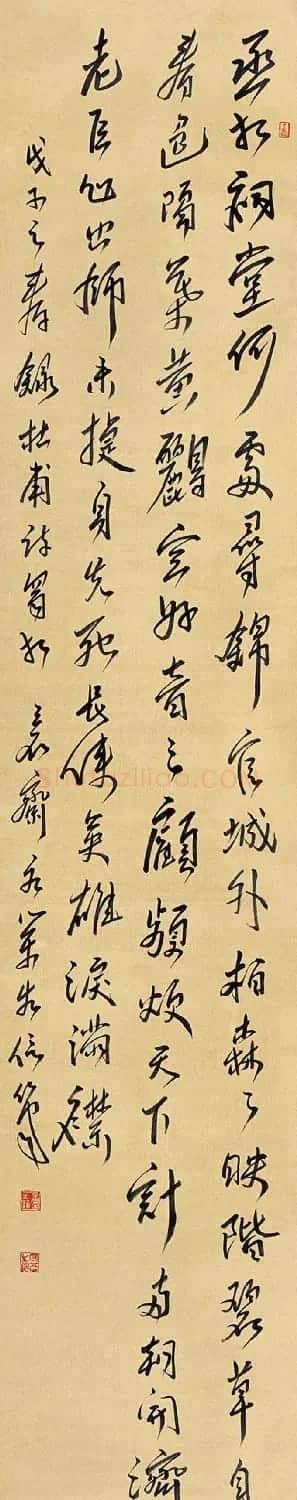 丞相祠堂何處尋錦官城外柏森々映階碧草自
春色隔葉黃鸝空好音三顧頻煩天下計兩朝開濟
老臣心出師未捷身先死長使英雄淚滿襟
戊子之春錄杜甫詩蜀相 齋 信筆